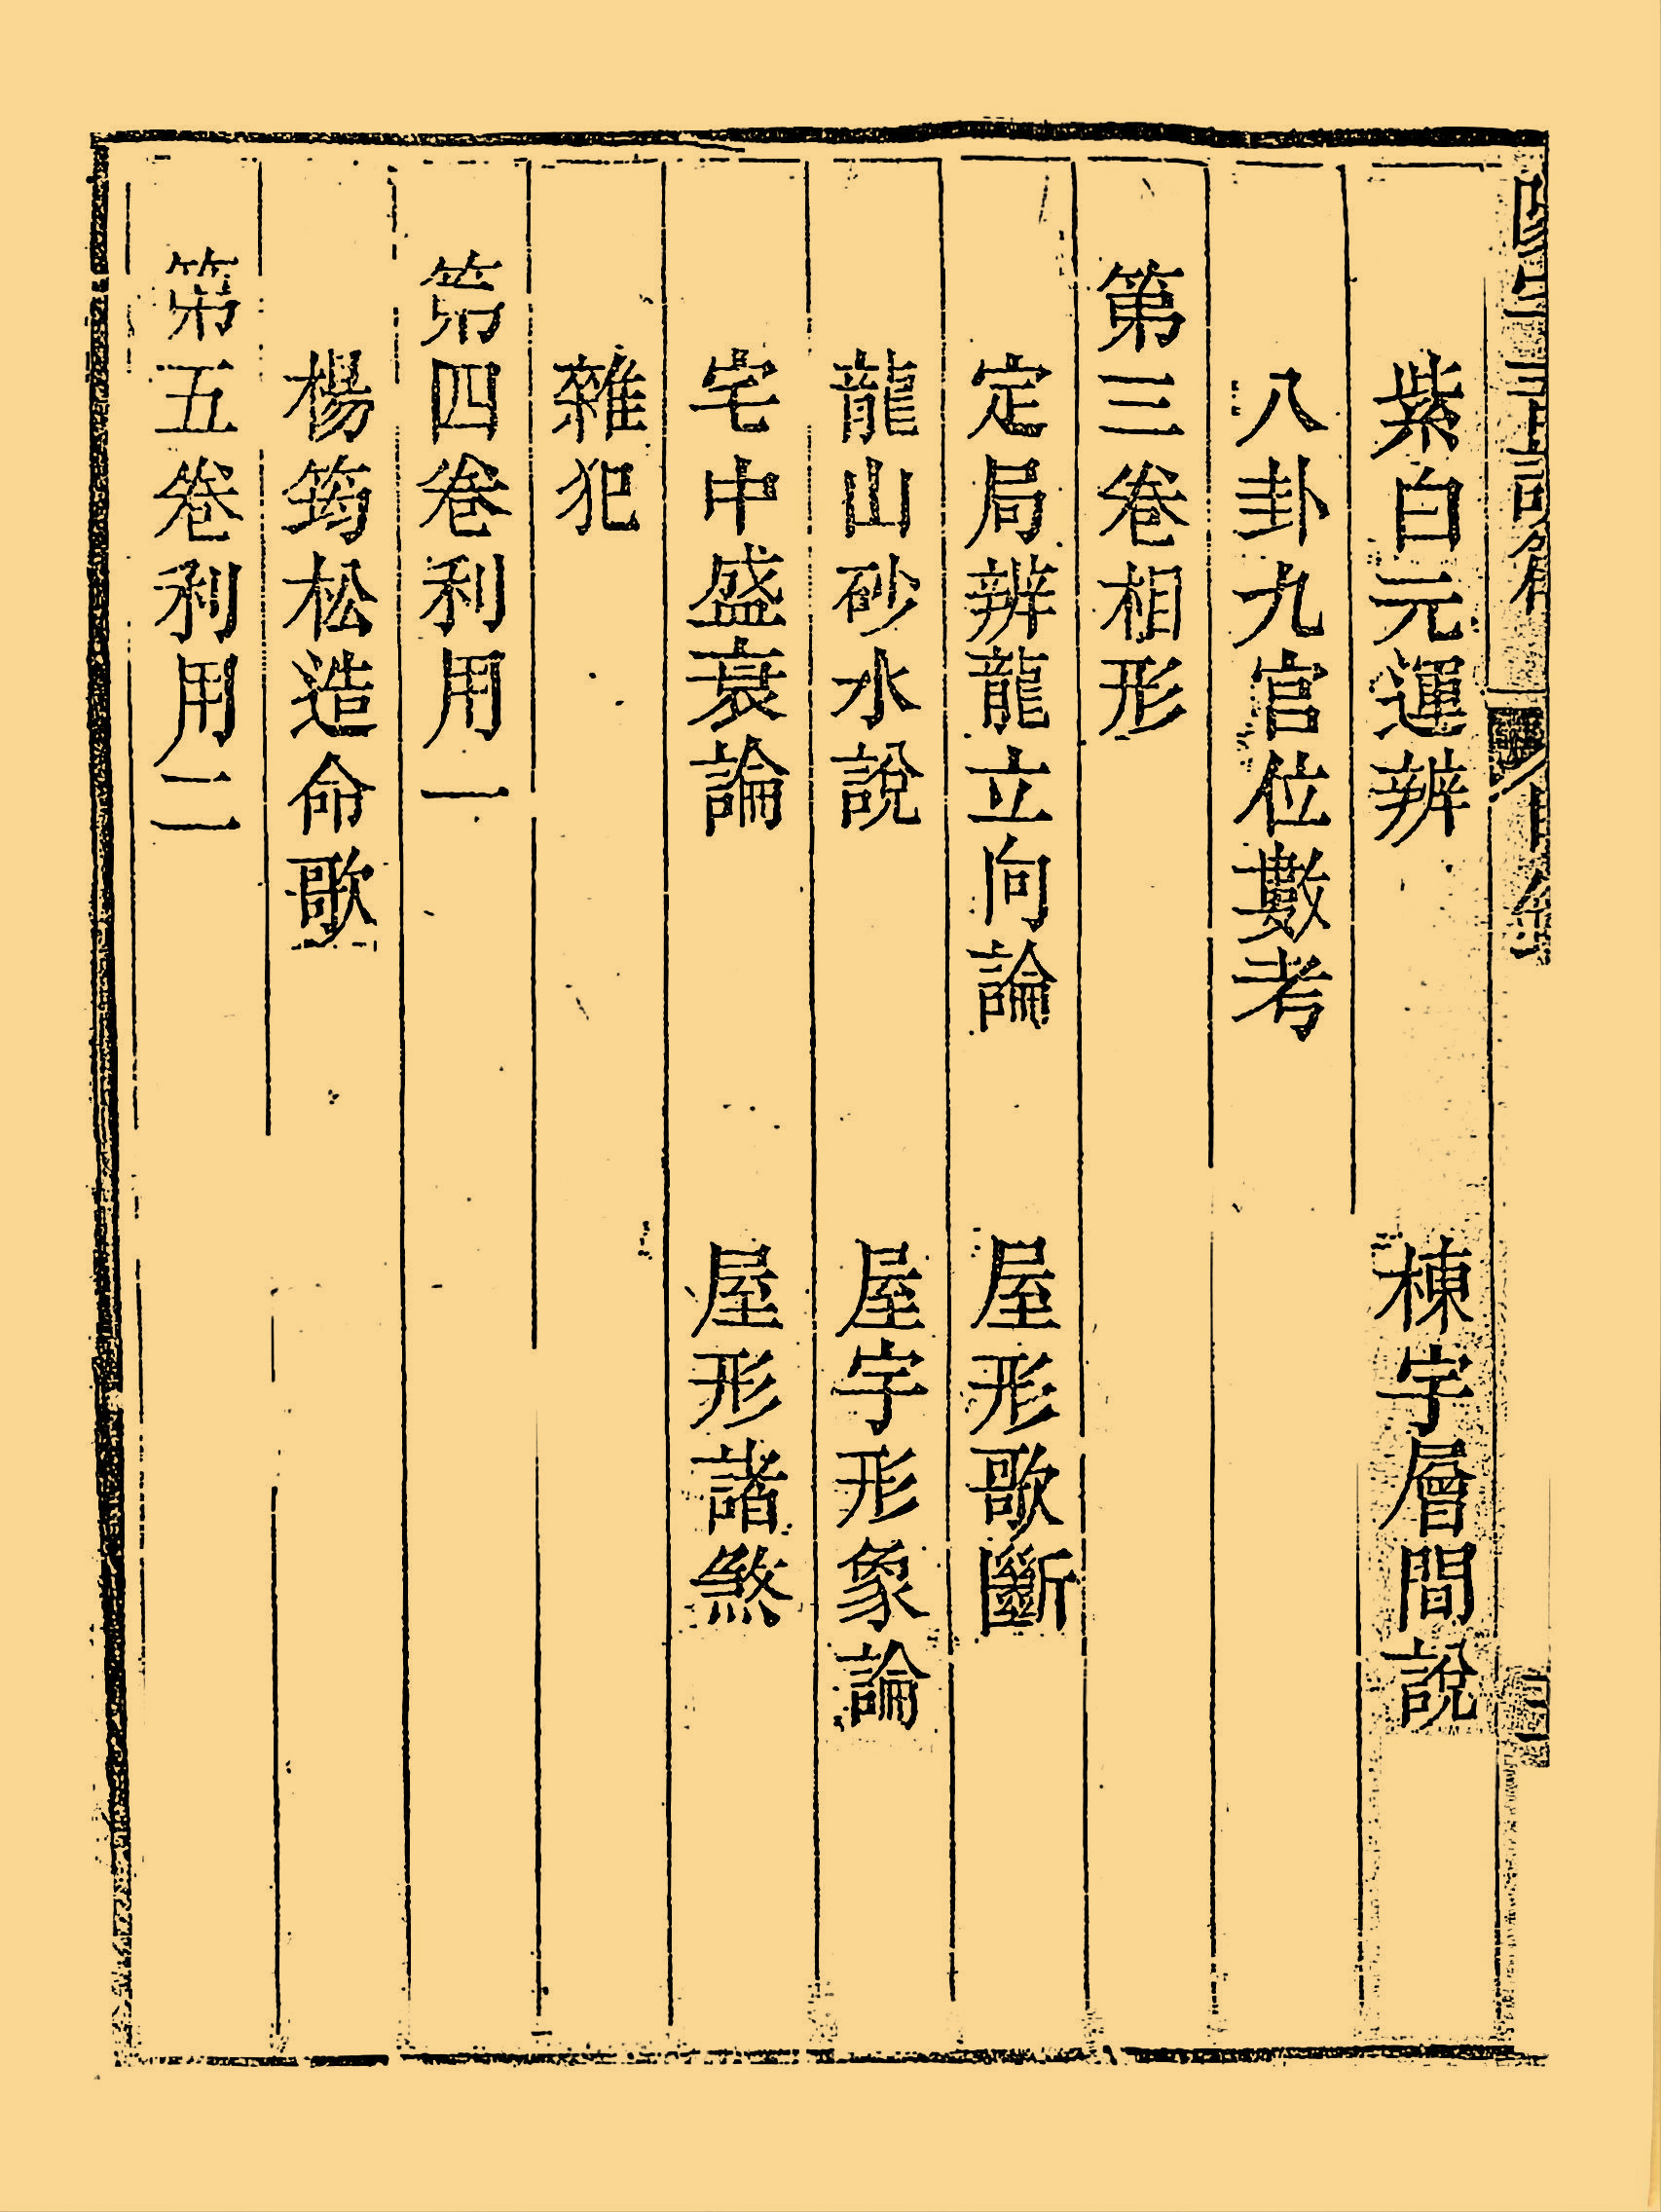 紫白元運辨　棟宇層間說
八卦九宮位數考
第三卷相形
定局辨龍立向論　屋形歌斷
龍山砂水說　屋宇形象論
宅中盛衰論　屋形諸煞
雜犯
第四卷利用一
楊筠松造命歌
第五卷利用二